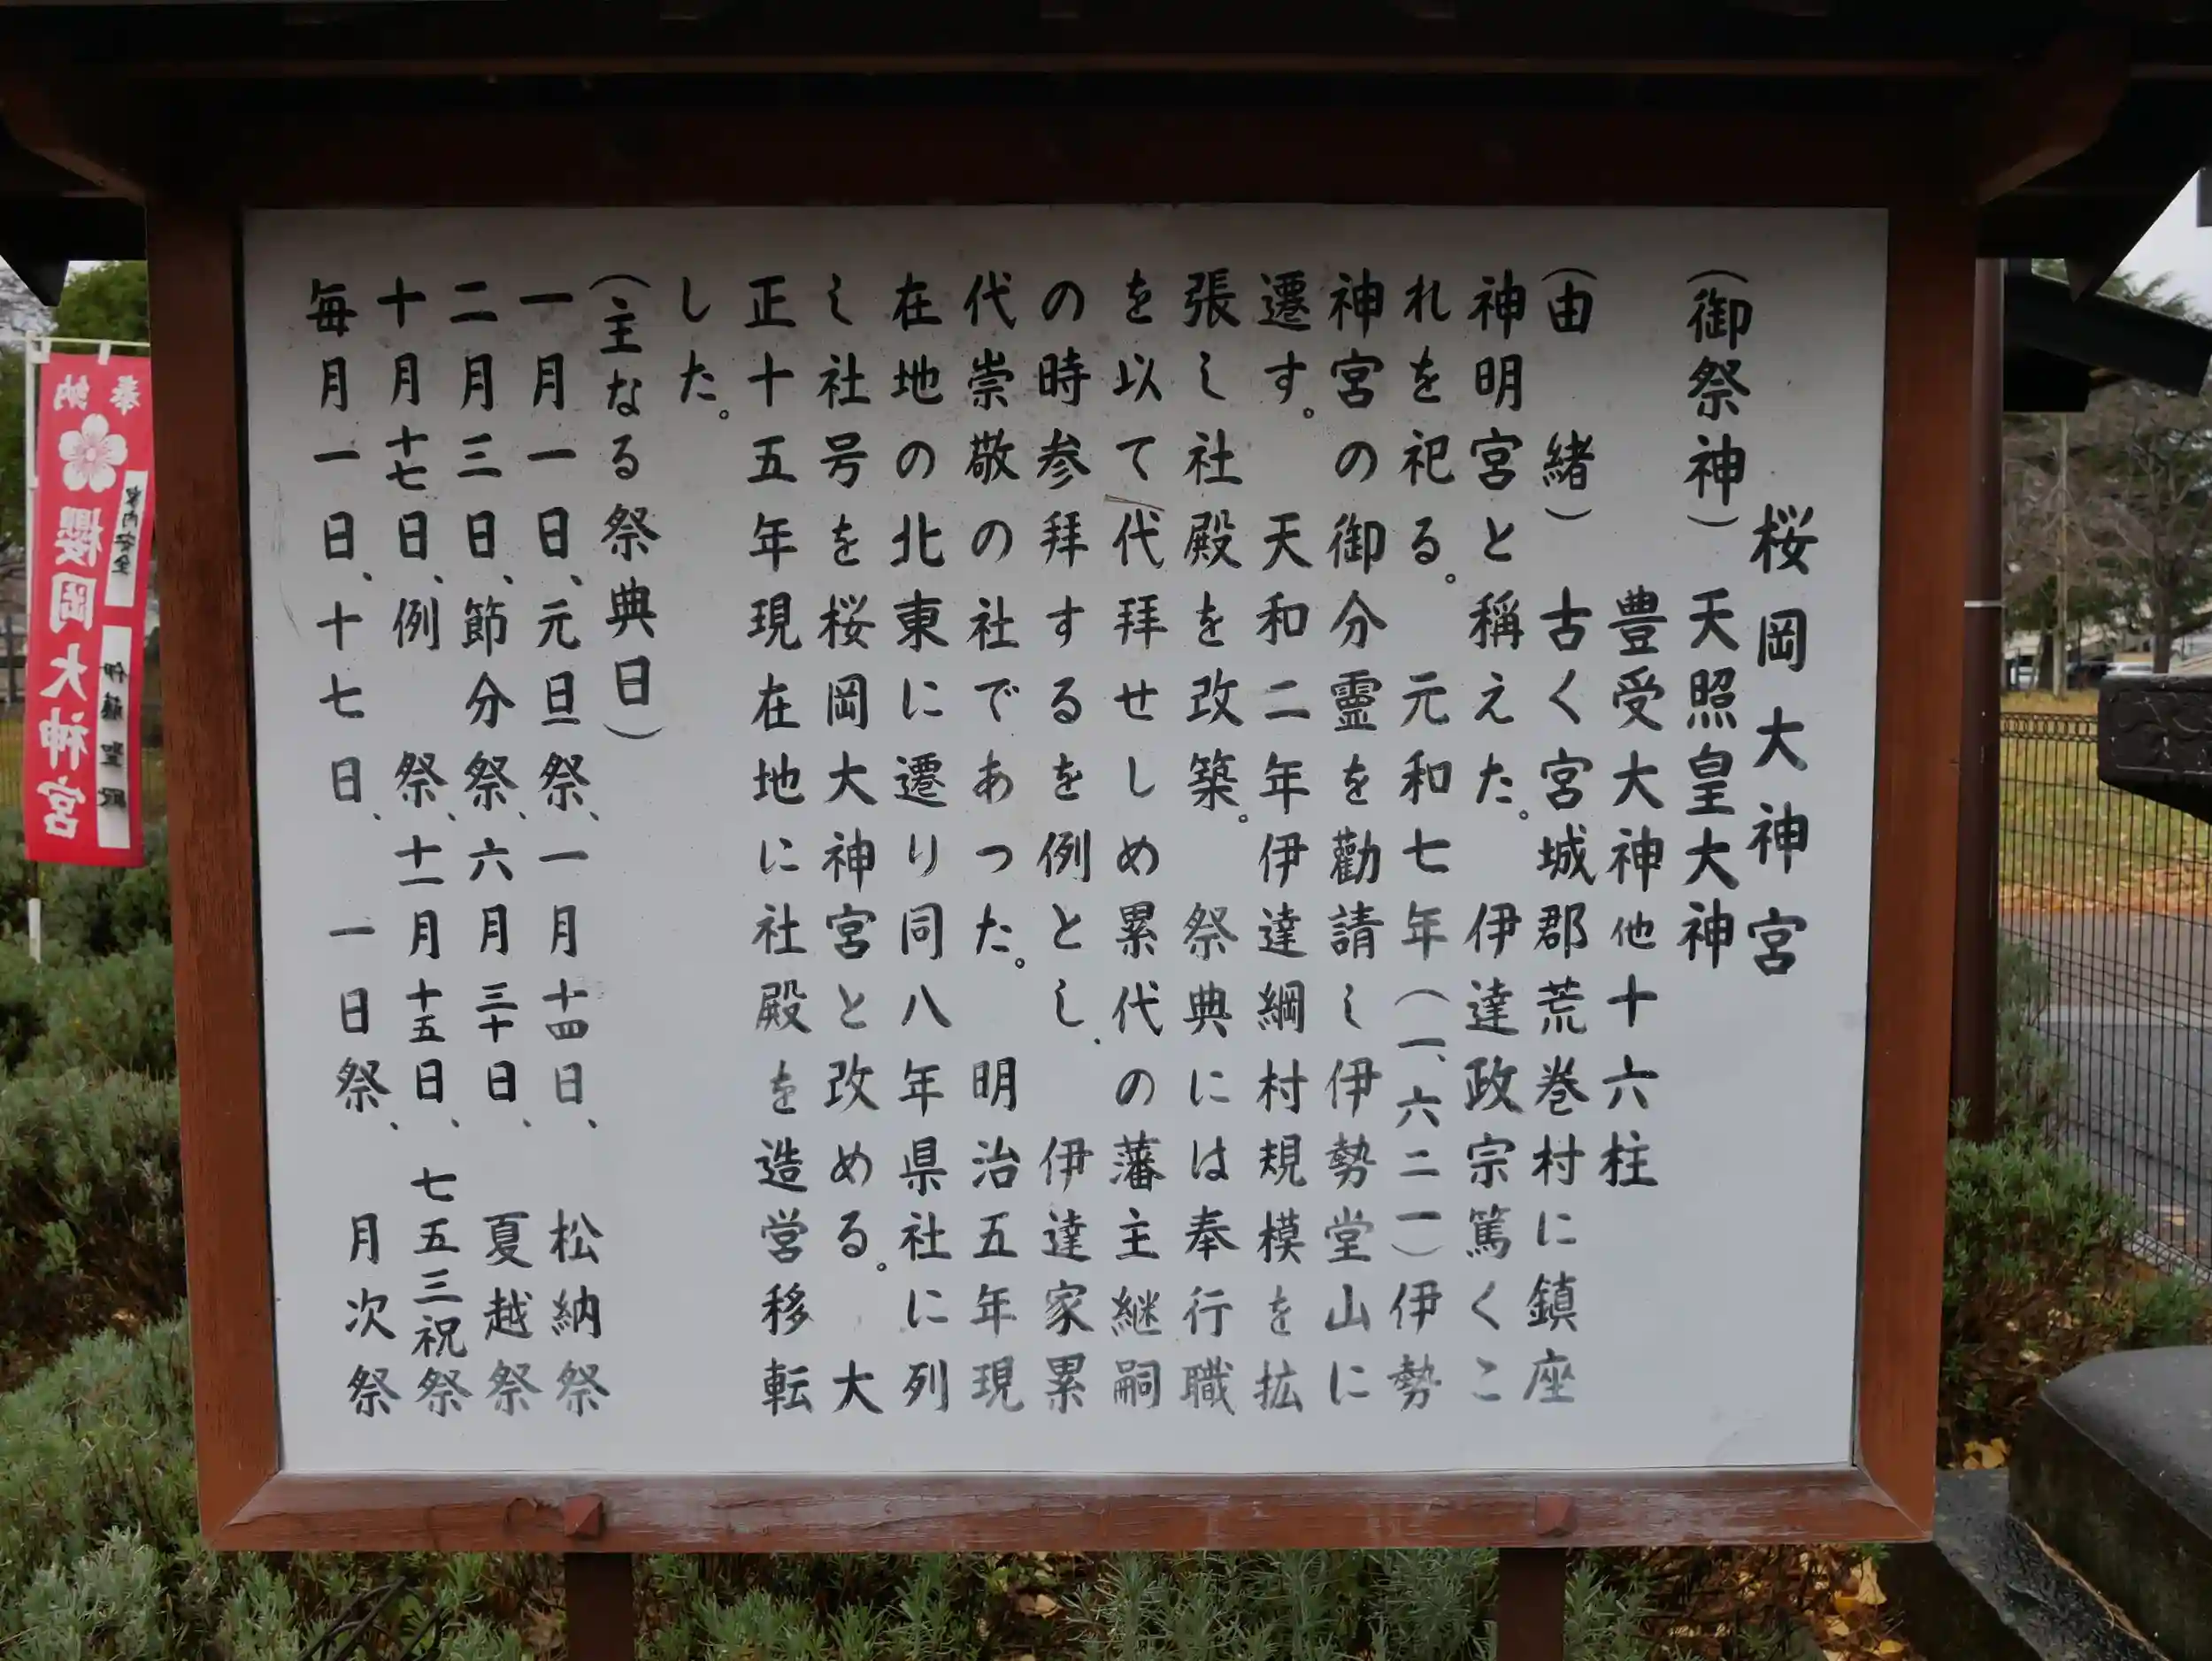 桜岡大神宮
（御祭神）天照皇大神
豊受大神他十六柱
（由　緒）古く宮城郡荒巻村に鎮座
神明宮と稱えた。　伊達政宗篤くこ
れを祀る。　元和七年（一、六二一）伊勢
神宮の御分霊を勸請し伊勢堂山に
遷す。　天和二年伊達綱村規模を拡
張し社殿を改築。　祭典には奉行職
を以て代拝せしめ累代の藩主継嗣
の時参拝するを例とし、　伊達家累
代崇敬の社であつた。　明治五年現
在地の北東に遷り同八年県社に列
し社号を桜岡大神宮と改める。　大
正十五年現在地に社殿を造営移転
した。
（主なる祭典日）
一月一日、元旦祭、一月十四日、　松納祭
二月三日、節分祭、六月三十日、　夏越祭
十月十七日、例　祭、十一月十五日、七五三祝祭
毎月一日、十七日、　一日祭、　月次祭
奉納
櫻岡大神宮